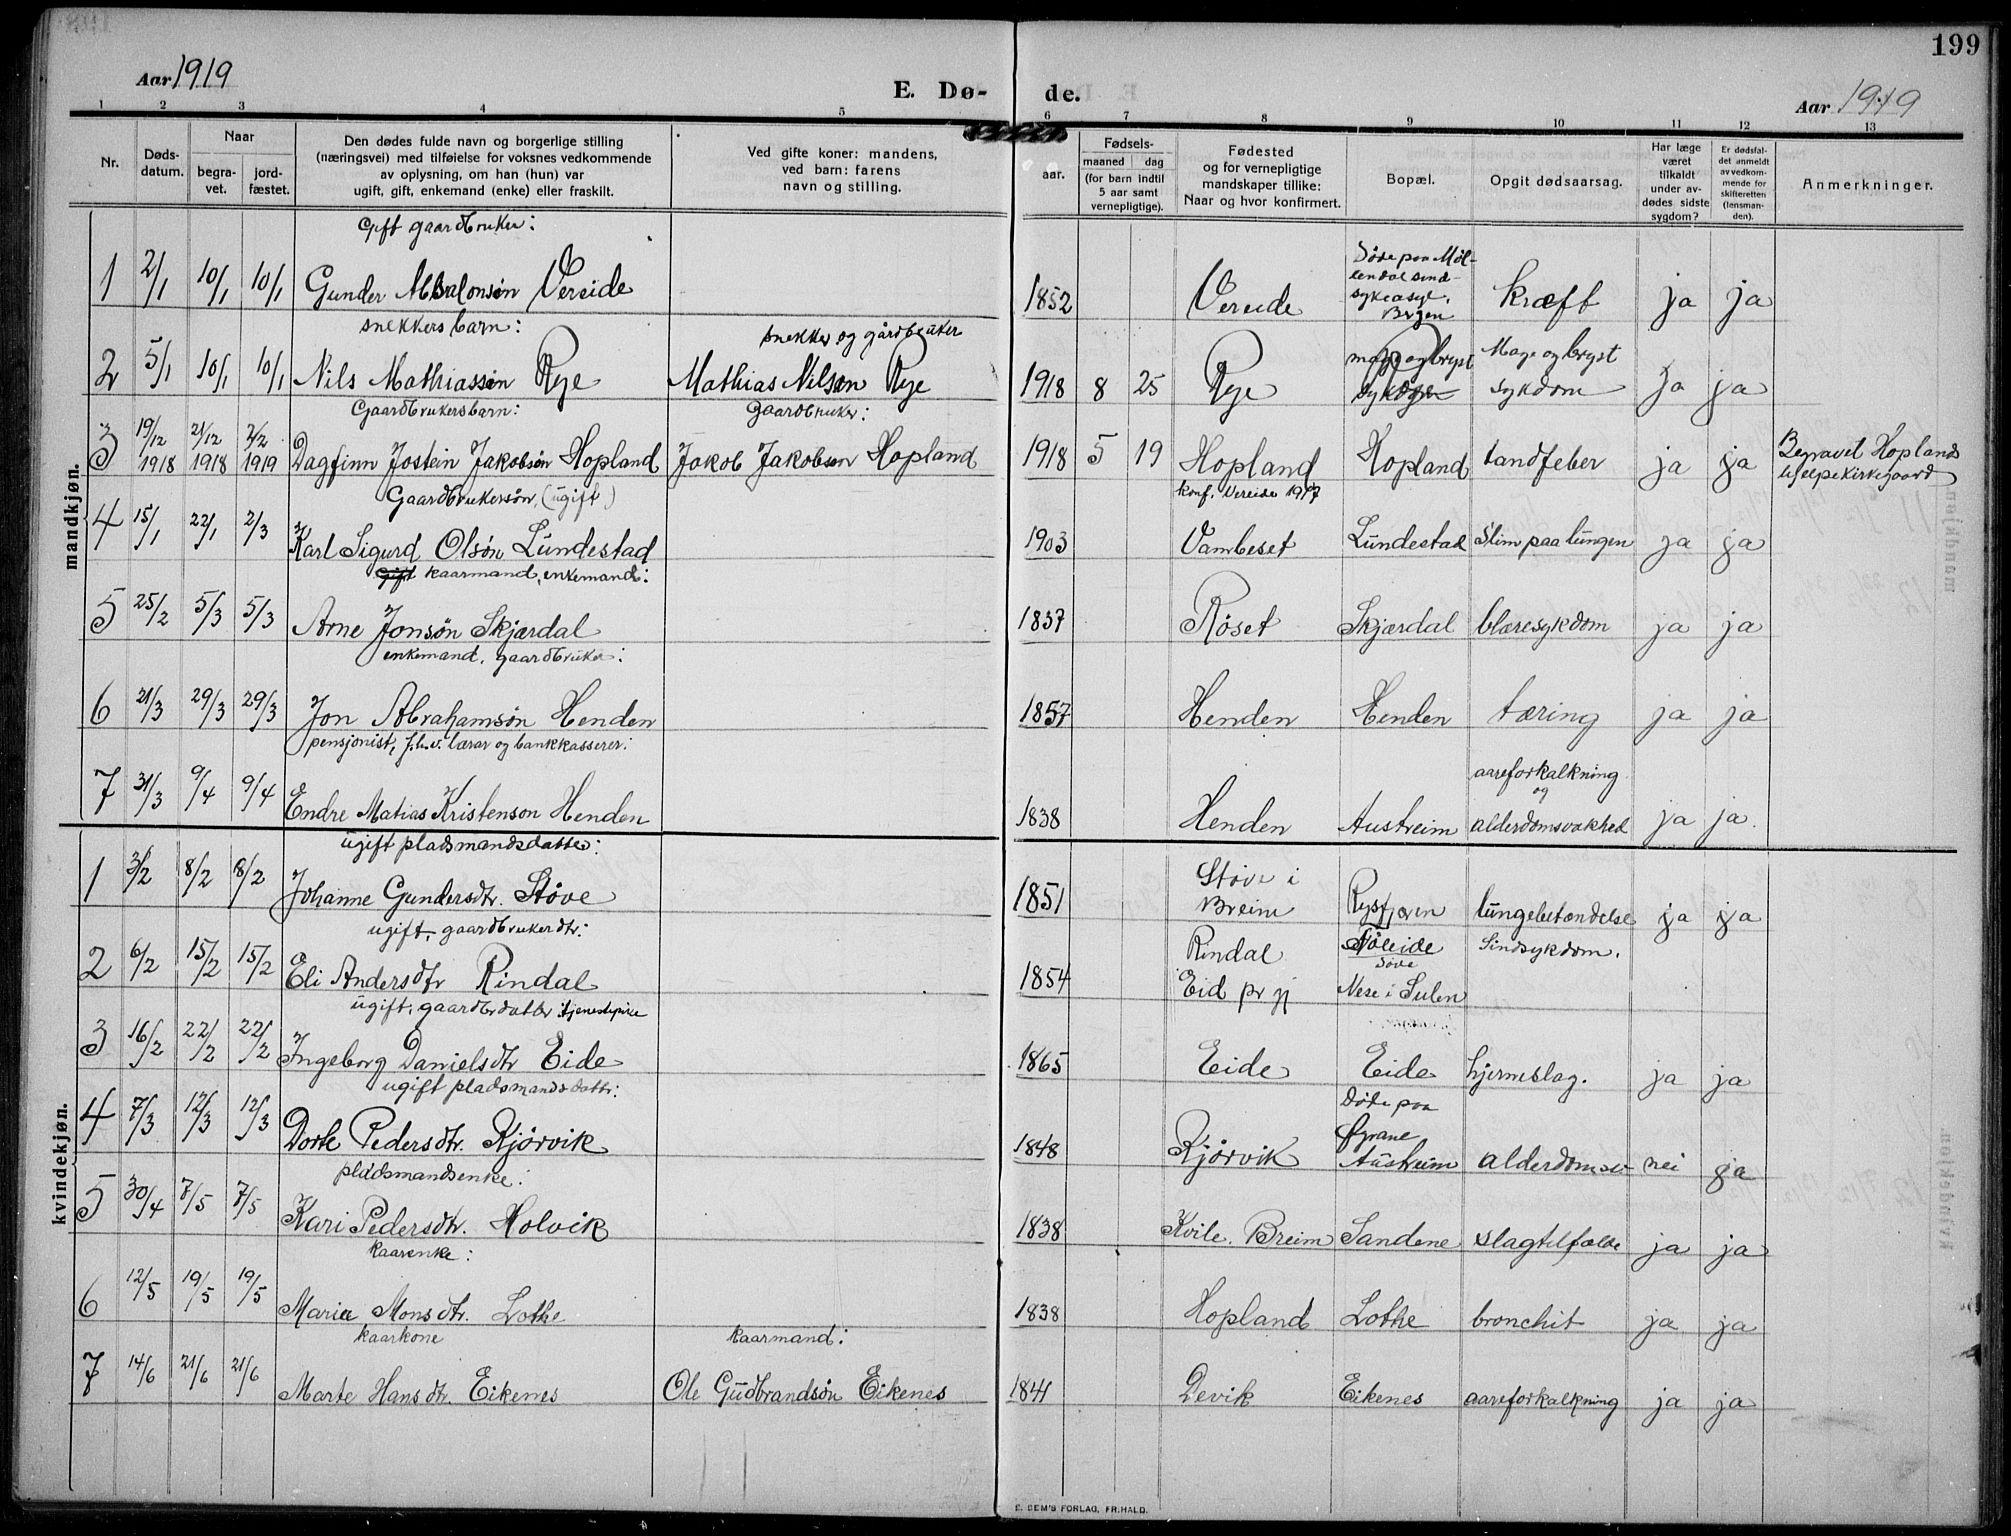 199
Aar 1919
E. Dø-
de.
Aar 1919
1 2 3 4 5 6 7 8 9 10 11 12 13
Nr.
Døds-
datum.
Naar
begra-
vet.
jord-
fæstet.
Den dødes fulde navn og borgerlige stilling
(næringsvei) med tilføielse for voksnes vedkommende
av oplysning, om han (hun) var
ugift, gift, enkemand (enke) eller fraskilt.
Ved gifte koner: mandens,
ved barn: farens
navn og stilling.
aar.
Fødsels-
maaned dag
(for barn indtil
5 aar samt
vernepligtige).
Fødested
og for vernepligtige
mandskaper tillike:
Naar og hvor konfirmert.
Bopæl.
Opgit dødsaarsag.
Har læge
været
tilkaldt
under av-
dødes sidste
sygdom?
Er dødsfal-
det anmeldt
av vedkom-
mende for
skifteretten
(lensman-
den).
Anmerkninger.
mandkjøn.
Gift gaardbruker:
1 2/1 10/1 10/1 Gunder Absalonsøn Vereide 1852 Vereide Døde paa Møl-
lendal sind-
sykeasyl.
Bergen kræft ja ja
snekkers barn: snekker og gårdbruker
2 5/1 10/1 10/1 Nils Mathiassøn Rye Mathias Nilsøn Rye 1918 8 25 Rye Mage og bryst
sykdom ja ja
Gaardbrukersbarn: Gaardbruker:
3 19/12 1918 21/12 1918 2/2 1919 Dagfinn Jostein Jakobsøn Hopland Jakob Jakobson Hopland 1918 5 19 Hopland Hopland tandfeber ja ja Begravet Hoplands
hjelpekirkegaard
Gaardbrukersøn, (ugift) konf. Vereide 1917
4 15/1 22/1 2/3 Karl Sigurd Olsøn Lundestad 1903 Vambeset Lundestad slim paa lungen ja ja
Gift kaarmand, enkemand:
5 25/2 5/3 5/3 Arne Jonsøn Skjærdal 1837 Røset Skjærdal blæresykdom ja ja
enkemand, gaardbruker:
6 21/3 29/3 29/3 Jon Abrahamsøn Henden 1857 Henden Henden tæring ja ja
pensjonist, f.h.v. lærar og bankkasserer:
7 31/3 9/4 9/4 Endre Matias Kristenson Henden 1838 Henden Austreim aareforkalkning
og
alderdomsvakhed ja ja.
kvindekjøn.
ugift pladsmandsdatter:
1 3/2 8/2 8/2 Johanne Gundersdtr. Støve 1851 Støve i
Breim Rysfjæren lungebetændelse ja ja
ugift, gaardbrukerdtr:
2 6/2 15/2 15/2 Eli Andersdtr Rindal 1854 Rindal
Eid pr gj
Nese i Sulen Sindsykdom.
ugift, gaardbrdatter tjenestepike
3 16/2 22/2 22/2 Ingeborg Danielsdtr Eide 1865 Eide Eide hjerneslag. ja ja
ugift pladsmandsdattr:
4 7/3 12/3 12/3 Dorte Pedersdtr. Rjørvik 1848 Rjørvik Døde paa
Øyrane
Austreim alderdomsv nei ja
pladsmandsenke:
5 30/4 7/5 7/5 Kari Pedersdtr. Holvik 1838 Kvile. Breim Sandene slagtilfælde ja ja
kaarenke:
6 12/5 19/5 19/5 Maria Monsdtr. Lothe 1838 Hopland Lothe bronchit ja ja
kaarkone kaarmand:
7 14/6 21/6 21/6 Marte Hansdtr. Eikenes Ole Gudbrandsøn Eikenes 1841 Devik Eikenes aareforkalkning ja ja
E. SEM'S FORLAG, FR.HALD.